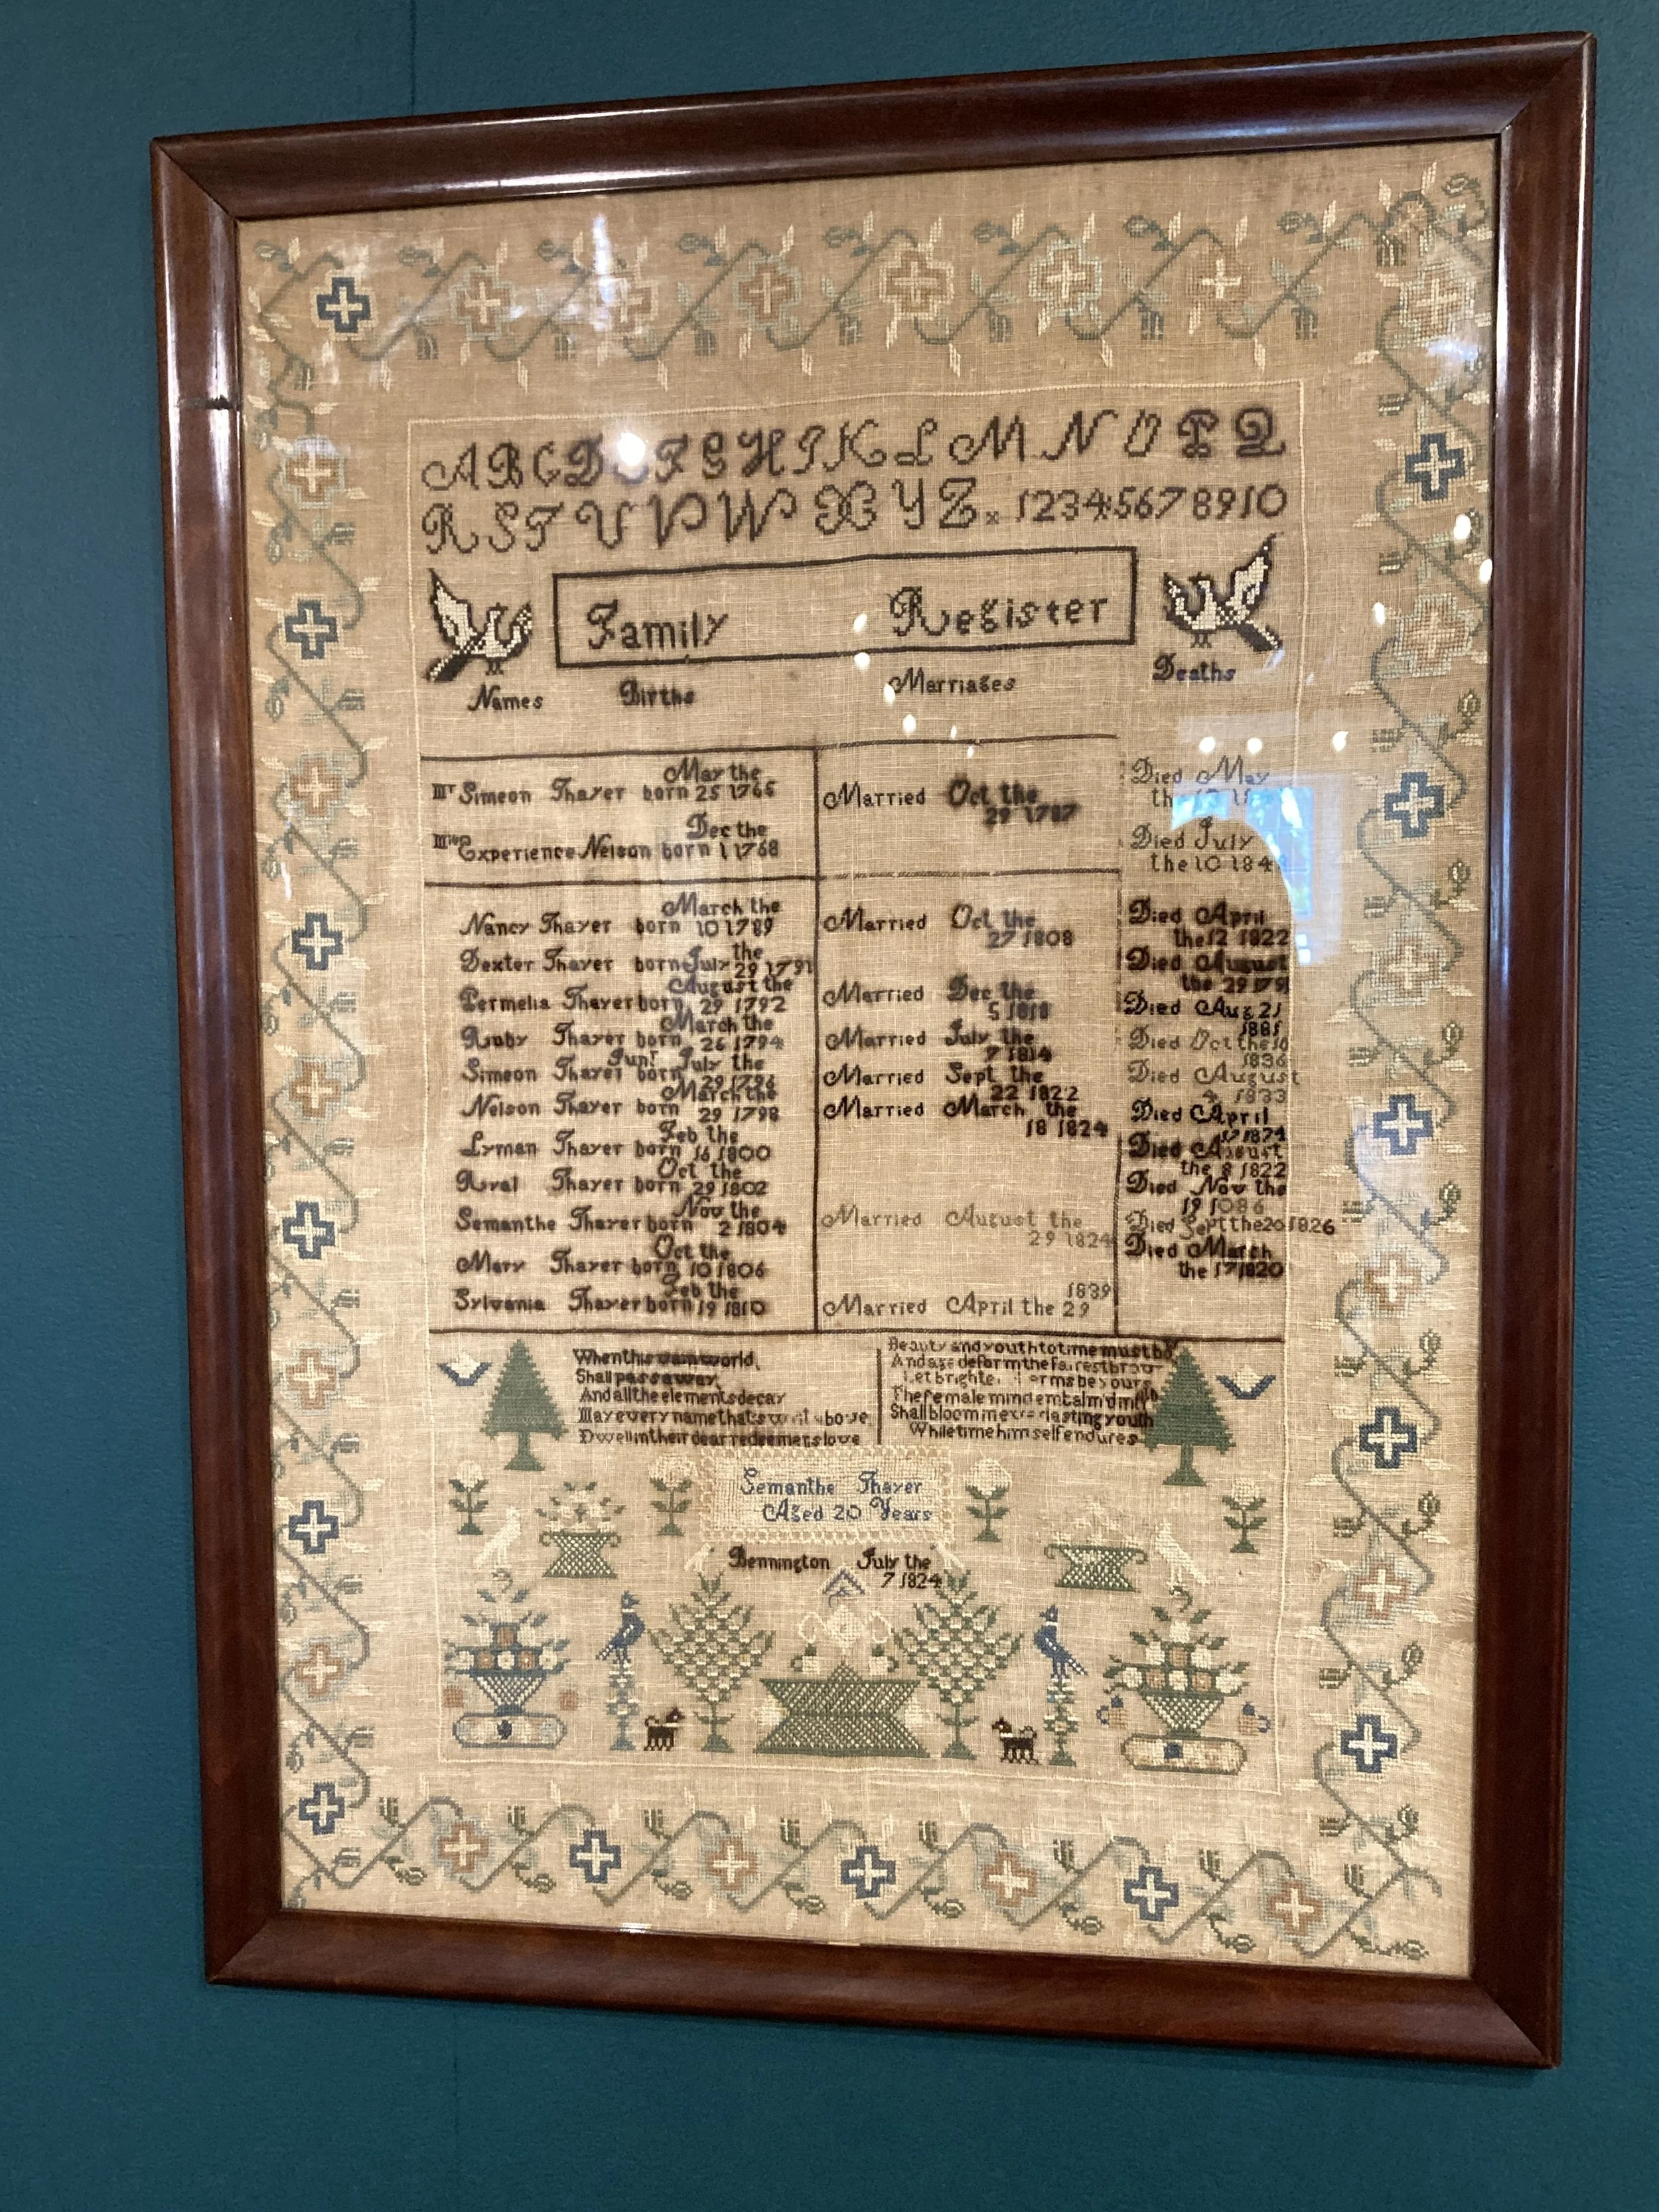 A B C D F G H I K L M N O P Q
R S T U V W X Y Z. 1 2 3 4 5 6 7 8 9 10
Family Register
Names Births Marriages Deaths
May the
Mr Simeon Thayer born 25 1765 Married Oct the Died May
29 1787 the
Dec the Died July
Experience Nelson born 1 1768 the 10 184
March the
Nancy Thayer born 10 1789 Married Oct the Died April
27 1808 the 12 1822
the
Dexter Thayer born July 29 1791 Died August
the 29 1791
August the
Permelia Thayer born 29 1792 Married Dec the Died Aug 21
5 1818 1881
March the
Ruby Thayer born 26 1794 Married July the Died Oct the 10
7 1814 1836
Junr July the
Simeon Thayer born 29 1796 Married Sept the Died August
22 1822 4 1833
March the
Nelson Thayer born 29 1798 Married March the Died April
18 1824 17 1874
Feb the
Lyman Thayer born 16 1800 Died August
the 8 1822
Oct the
Royal Thayer born 29 1802 Died Nov the
19
Nov the
Semanthe Thayer born 2 1804 Married August the Died Sept the 20 1826
29 1824
Oct the
Mary Thayer born 10 1806 Died March
the 17 1820
Feb the 1839
Sylvania Thayer born 19 1810 Married April the 29
When this vain world
Shall pass away
And all the elements decay
May every name thats writ above
Dwell in their dear redeemers love
Beauty and youth to time must bow
And age deform the fairest brow
Let brighter charms be yours
The female mind embalm'd in truth
Shall bloom in everlasting youth
While time himself endures
Semanthe Thayer
Aged 20 Years
Bennington July the
7 1824